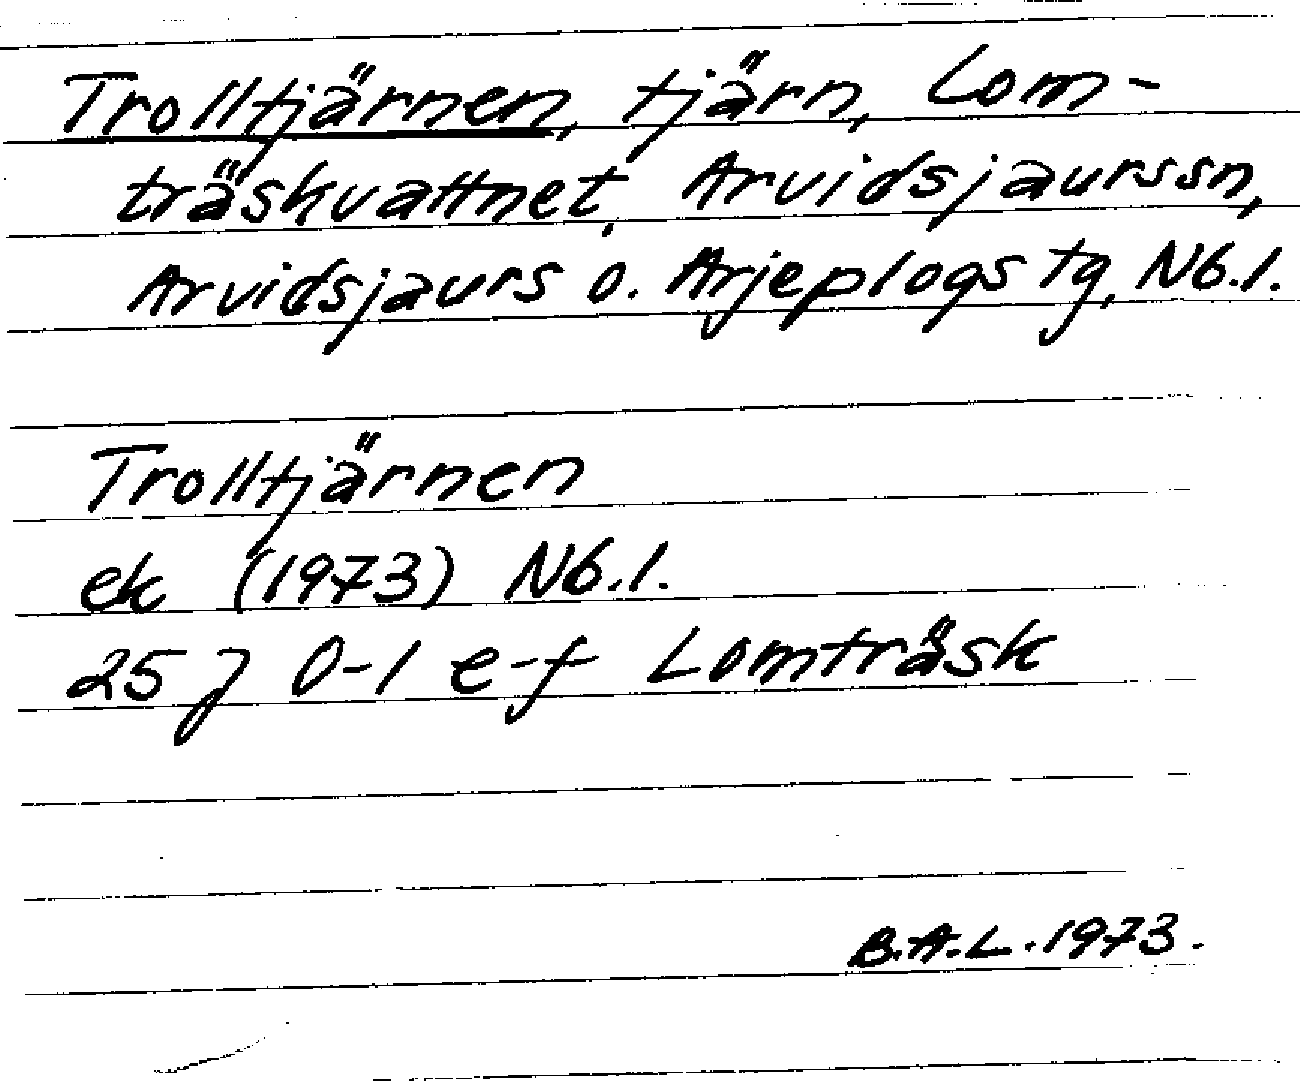 Trolltjärnen, tjärn, Lom-
träskvattnet, Arvidsjaurssn,
Arvidsjaurs o. Arjeplogs tg, Nb.l.
Trolltjärnen
ek (1973) Nb.l.
25 J 0-1 e-f Lomträsk
B.A.L. 1973.